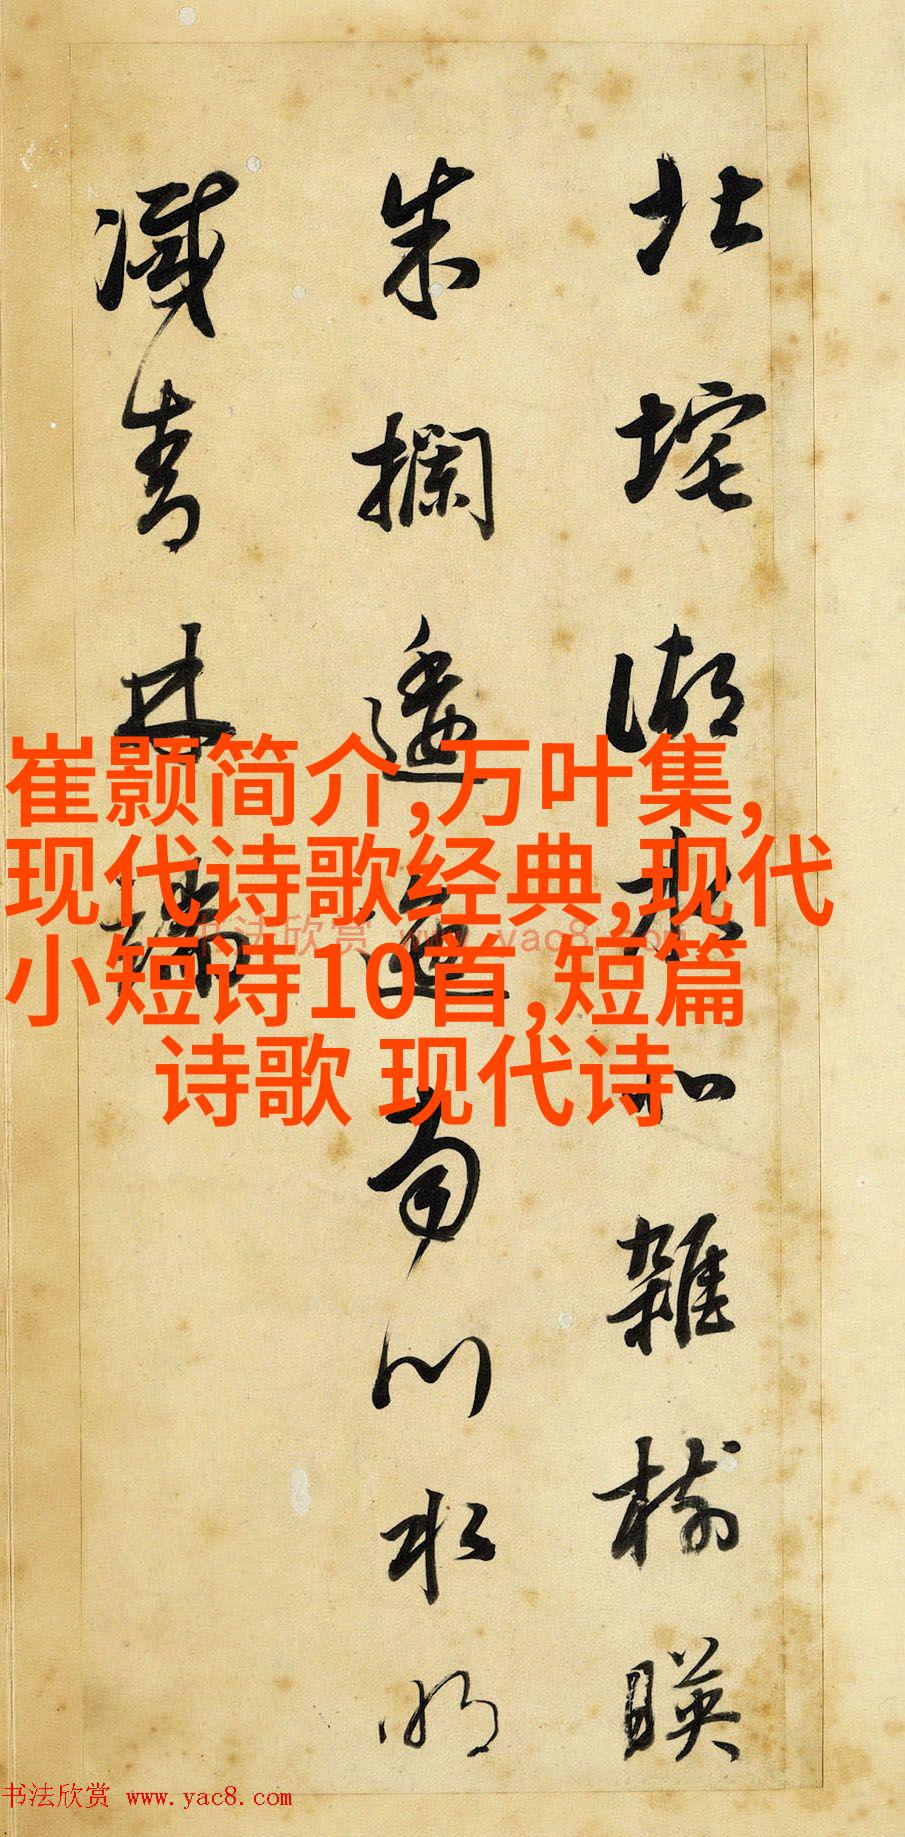 北垞湖水北雜樹暎
朱欄逶迤南川水明
滅青林端
崔颢简介,万叶集,
现代诗歌经典,现代
小短诗10首,短篇
诗歌 现代诗
书法欣赏 www.yac8.com
书法欣赏 www.yac8.com